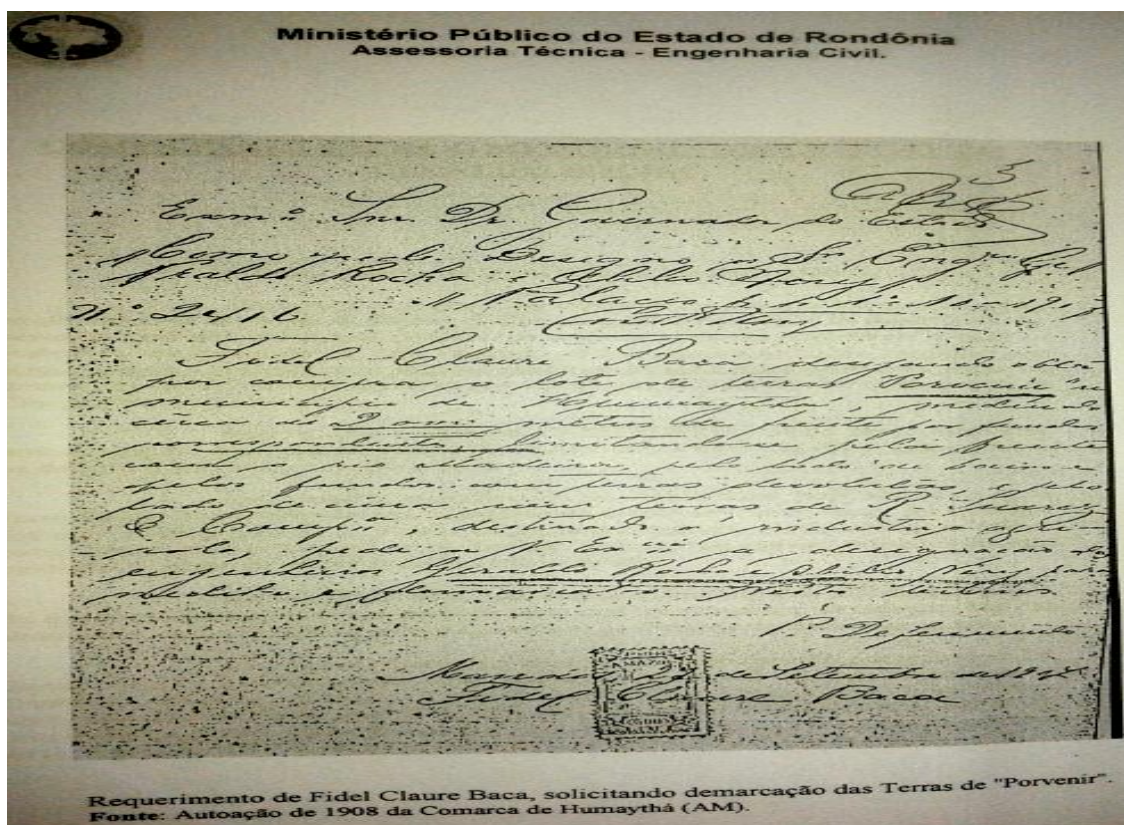 Ministério Público do Estado de Rondônia
Assessoria Técnica - Engenharia Civil.
3
Exmº Snr. Dr. Governador do Estado
Como pede. Designo o Sr. Engº
Rocha
Palacio 1º - 10 -
Nº 2416
Fidel Claure Baca, desejando obter
por compra o lote de terras "Porvenir" no
municipio de Humaythá, medindo
cerca de metros de frente por fundos
correspondentes, limitando-se pela frente
com o rio Madeira, pelo lado de baixo e
pelos fundos com terras devolutas, e pelo
lado de cima com terras de R. Suarez
& Compª, destinado a industria
pede a V. Exª a designação dos
engenheiros Rocha e Nery
P. Deferimento
Manáos, de Setembro de
Fidel Claure Baca
Requerimento de Fidel Claure Baca, solicitando demarcação das Terras de "Porvenir".
Fonte: Autoação de 1908 da Comarca de Humaythá (AM).